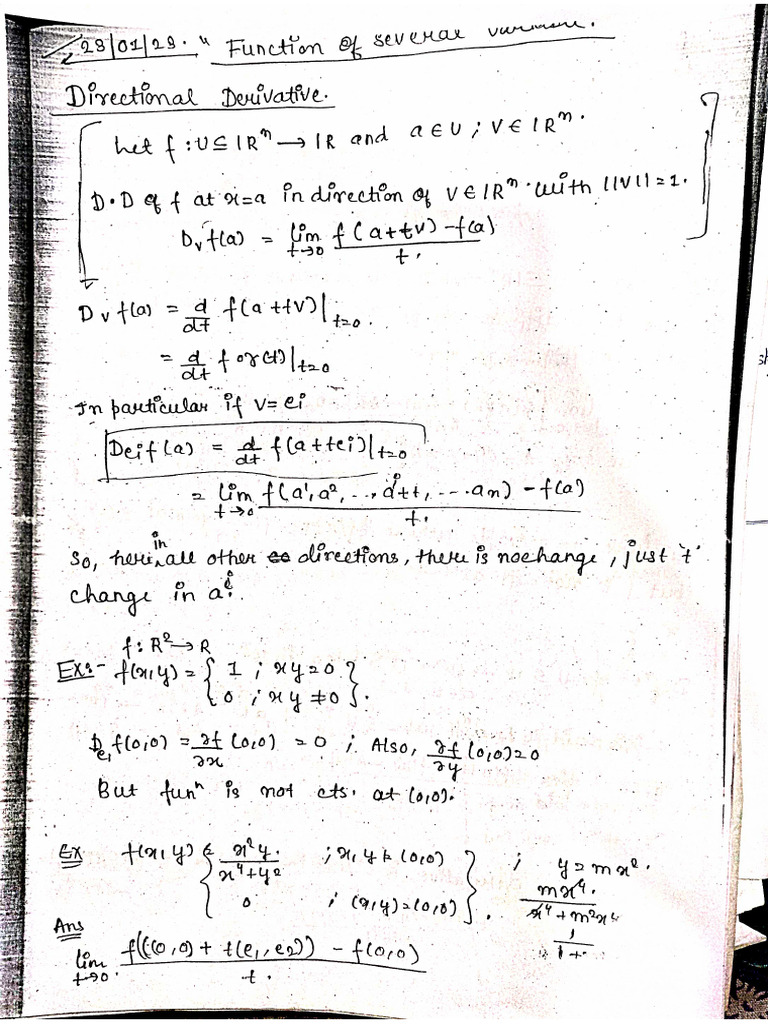 28/01/23. " Function of several
Directional Derivative.
Let f : U ⊆ IRⁿ → IR and a ∈ U ; V ∈ IRⁿ.
D.D of f at x=a in direction of V ∈ IRⁿ. with ||V|| = 1.
D_v f(a) = lim_{t→0} (f(a+tv) - f(a)) / t.
D_v f(a) = d/dt f(a+tv)|_{t=0}.
= d/dt f o r(t)|_{t=0}
In particular if v = ei
D_{ei} f(a) = d/dt f(a+tei)|_{t=0}
= lim_{t→0} (f(a¹, a², ..., aⁱ+t, ... an) - f(a)) / t.
So, here in all other directions, there is no change, just 't'
change in aⁱ.
f : R² → R
Ex:- f(x,y) = { 1 ; xy=0
0 ; xy ≠ 0 }.
D_{e1} f(0,0) = ∂f/∂x (0,0) = 0 ; Also, ∂f/∂y (0,0) = 0
But funⁿ is not cts. at (0,0).
Ex f(x,y) = { x²y / (x⁴+y²) ; x,y ≠ (0,0)
0 ; (x,y) = (0,0) }.
; y = mx².
mx⁴. / (x⁴ + m²x⁴)
Ans
lim_{t→0} (f((0,0) + t(e1,e2)) - f(0,0)) / t.